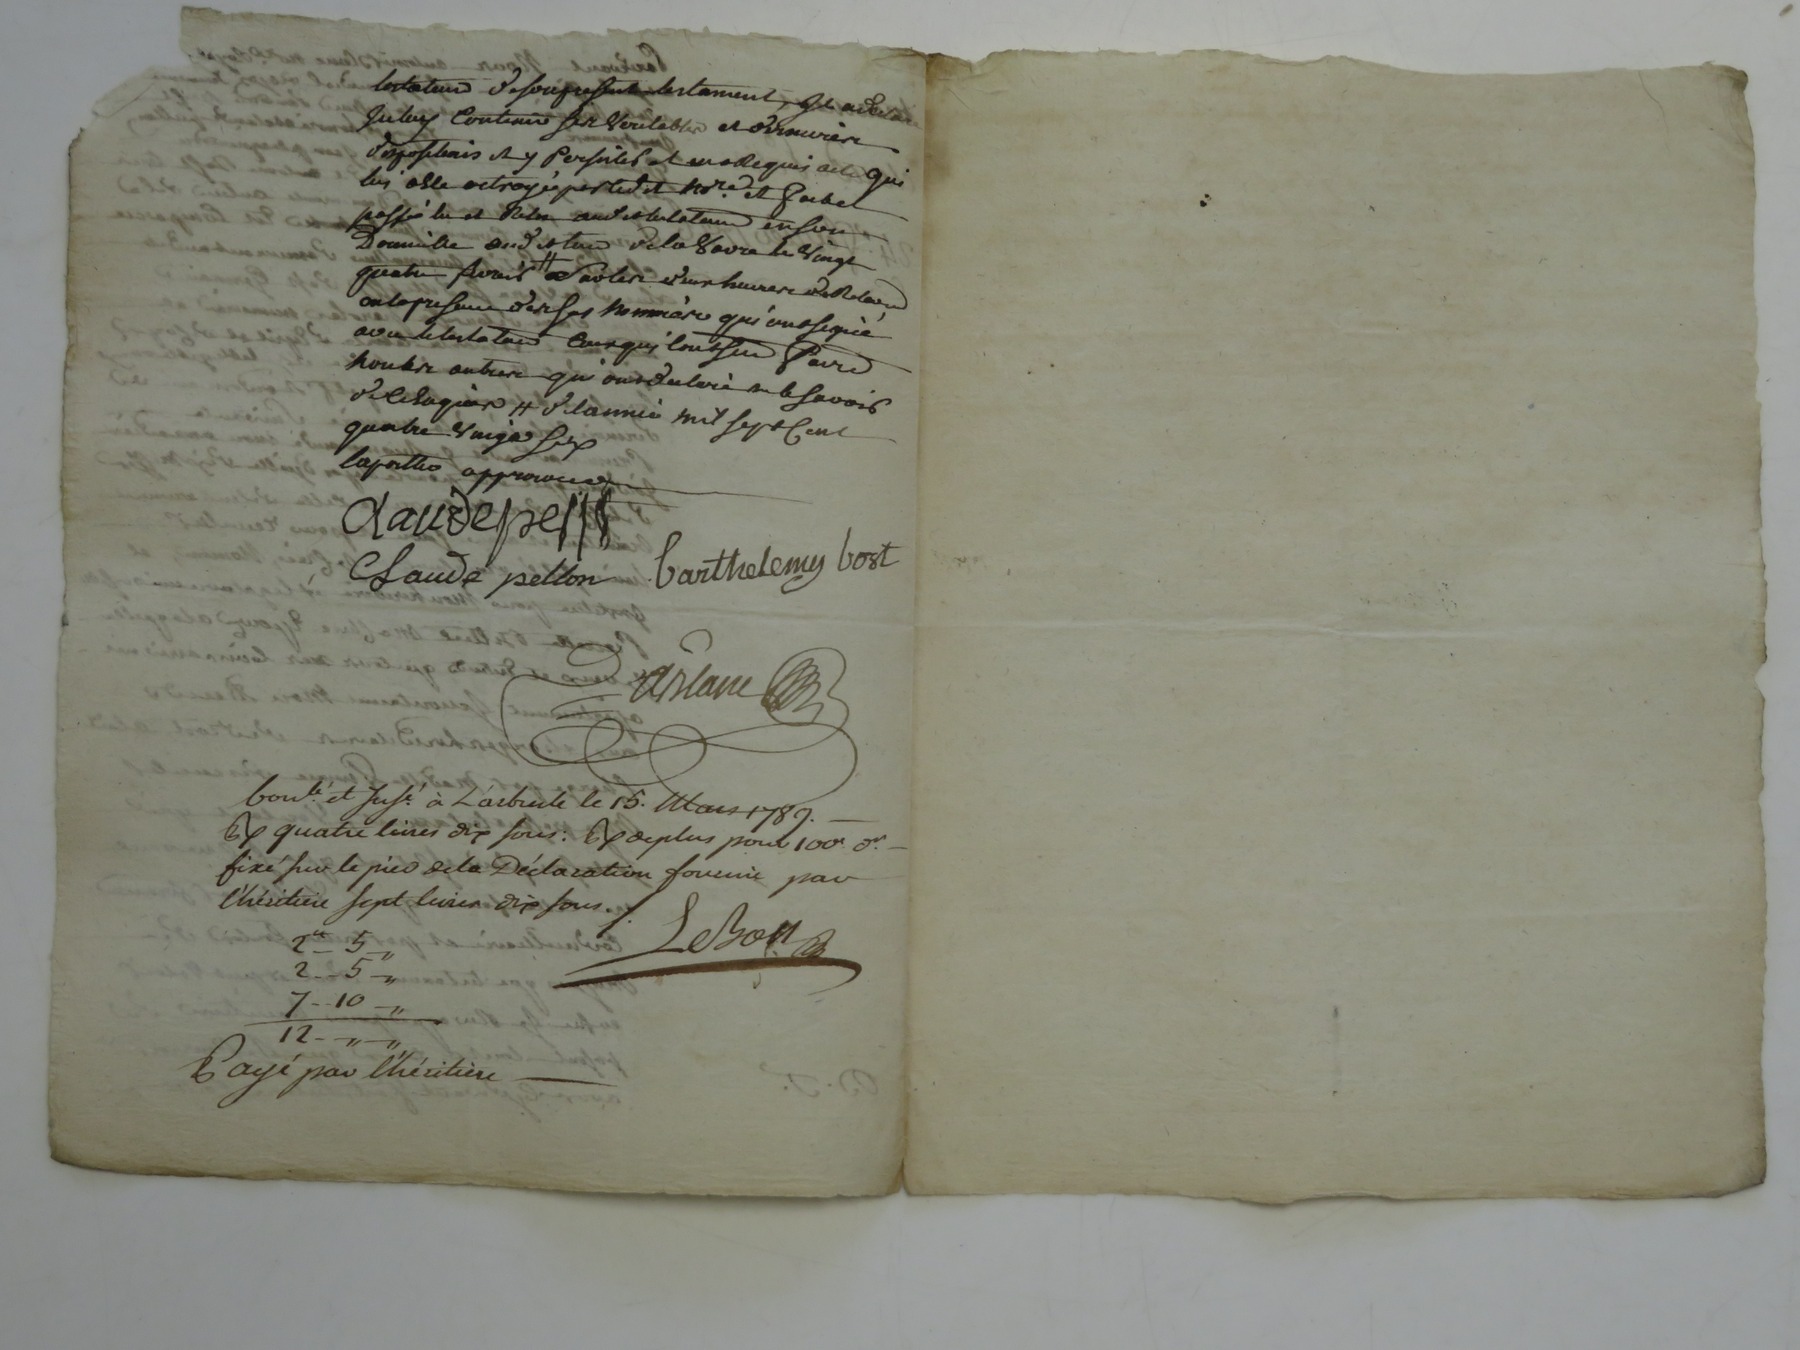 testateur de son present testament, Il a declaré
Iceluy Contenir ses veritables et dernieres
dispositions et y Persister et en a Requis acte Qui
luy a été octroyé par ledit Nore. et
passé lu et Relu audit testateur en son
Domicille audit lieu de la Vavre le Vingt
quatre avant
en la presence des sus nommés qui ont signé
avec le testateur Ceux qui l'ont sçeu faire
non les autres qui ont declaré ne le savoir
de ce Requis # de l'année mil sept Cent
quatre Vingt Six
lapostle approuvée
Claude
Claude pellon barthelemy bost
Delaue
Conlé et Insé à L'arbresle le 15. Mars 1789.
Rx quatre livres dix sous: Rx de plus pour 100e. dr.
fixé sur le pied de la Déclaration fournie par
l'héritiere sept livres dix sous.
LeBon
2# 5 "
2 - 5 - "
7 - 10 - "
12 - " - "
Payé par l'héritière